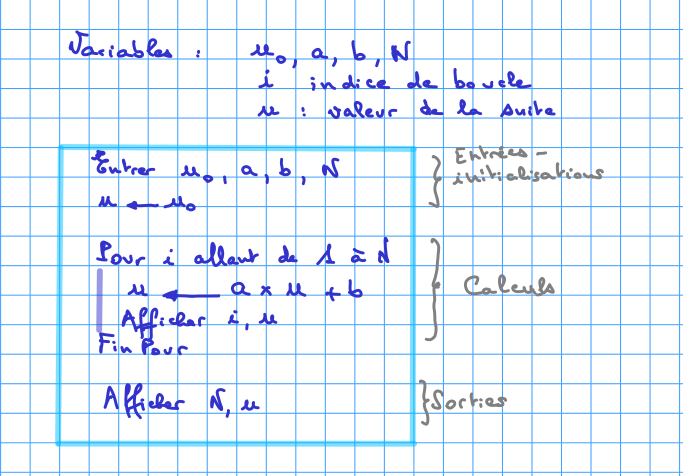 Variables : u₀, a, b, N
i indice de boucle
u : valeur de la suite
Entrer u₀, a, b, N
u ← u₀
Entrées -
initialisations
Pour i allant de 1 à N
u ← a × u + b
Afficher i, u
Fin Pour
Calculs
Afficher N, u
Sorties